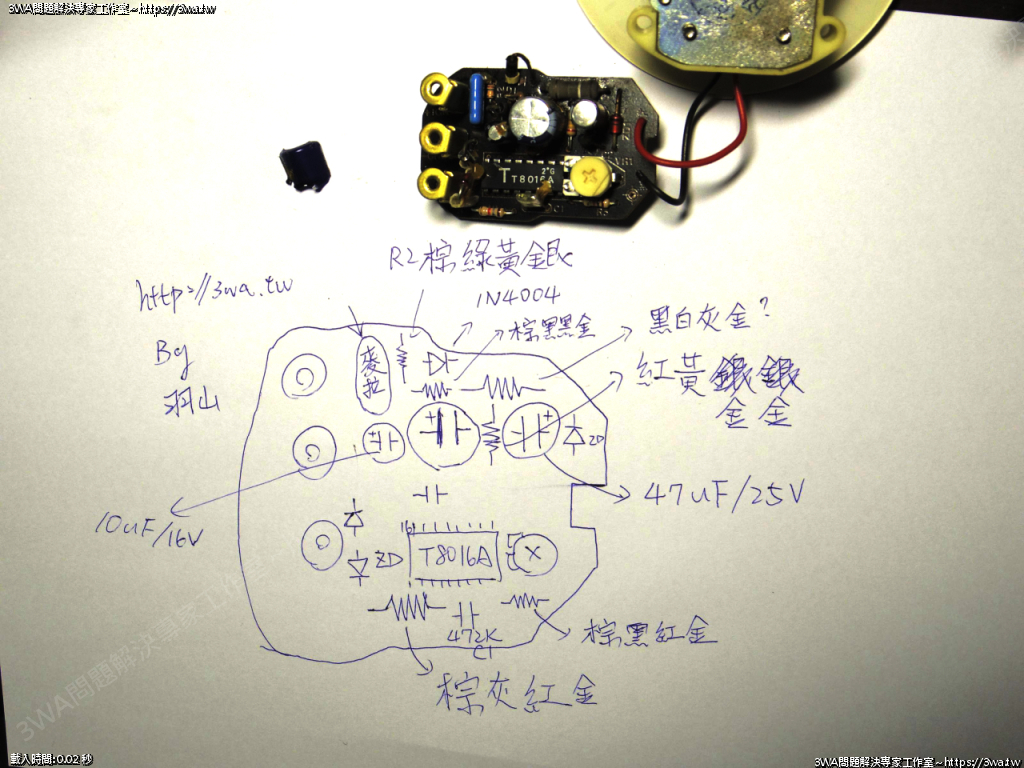 3WA問題解決專家工作室~https://3wa.tw
T T8016A
2*G
R2棕綠黃銀
http://3wa.tw
1N4004
棕黑黑金
黑白灰金?
By
羽山
麥拉
紅黃銀銀
金金
+
+
+
ZD
47uF/25V
10uF/16V
16
ZD
T8016A
472K
C1
棕黑紅金
棕灰紅金
3WA問題解決專家工作室
載入時間:0.02 秒
3WA問題解決專家工作室~https://3wa.tw